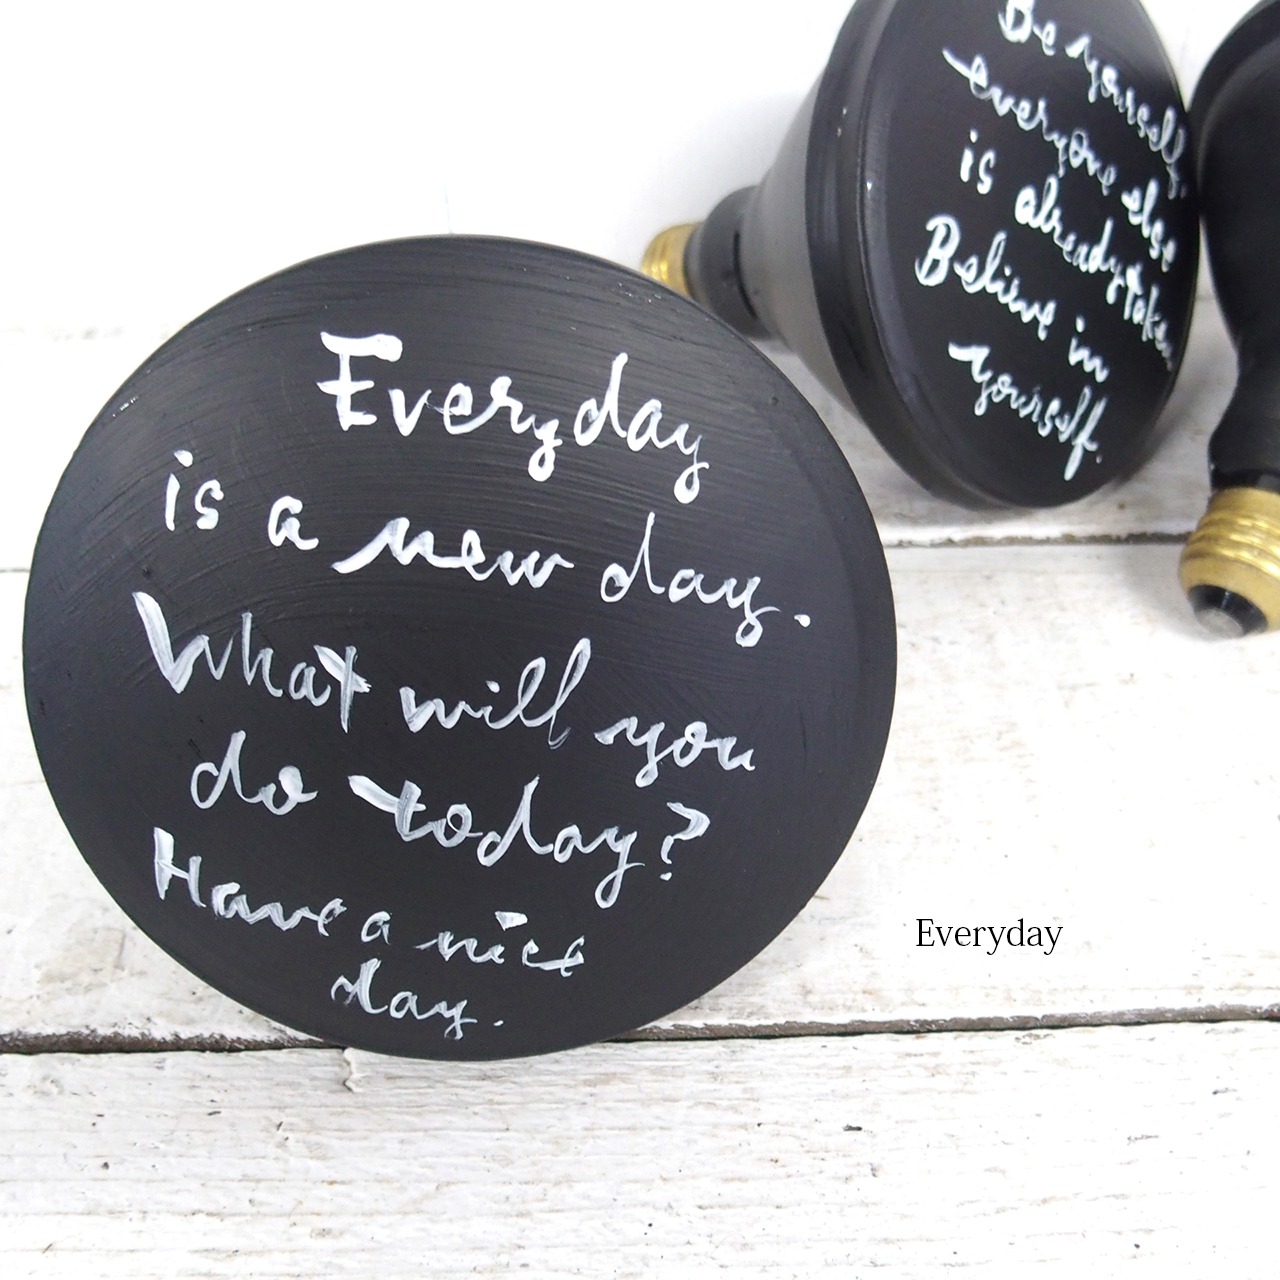 Everyday
is a new day.
What will you
do today?
Have a nice
day.
Be yourself,
everyone else
is already taken
Believe in
yourself.
Everyday